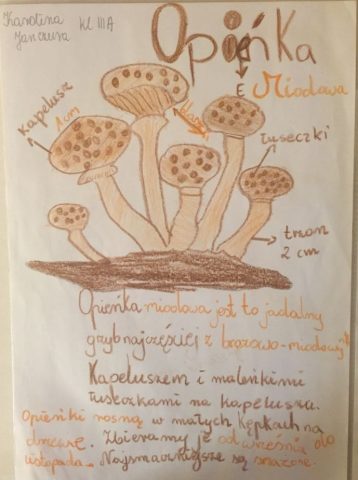 Karolina
Janczura kl IIIA
Opieńka
E Miodowa
kapelusz
1cm
blaszki
łuseczki
trzon
2 cm
Opieńka miodowa jest to jadalny
grzyb najczęściej z brązowo-miodowym
Kapeluszem i maleńkimi
łuskami na kapeluszu.
Opieńki rosną w małych Kępkach na
drzewie. Zbieramy je od września do
listopada. Najsmaczniejsze są smażone.